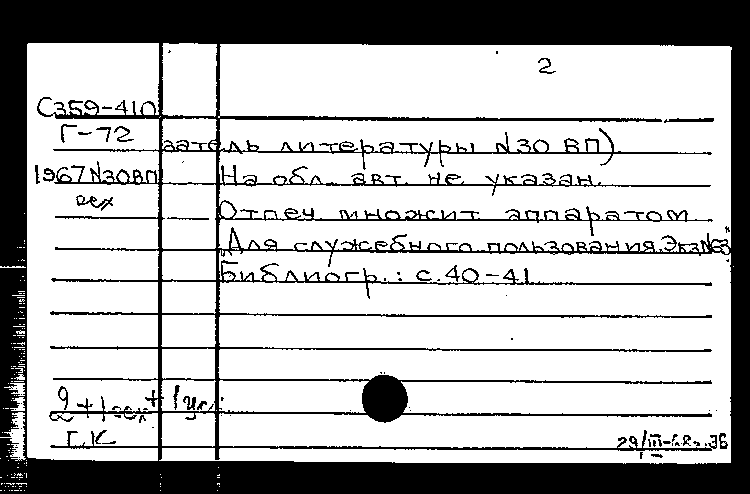 2
С359-410
Г-72
затель литературы N30 ВП)
1967 N30ВП
На обл. авт. не указан.
Отпеч множит аппаратом
"Для служебного пользования. Экз. N63"
Библиогр.: с. 40-41
2+1 +1
ГК
29/III-68г.